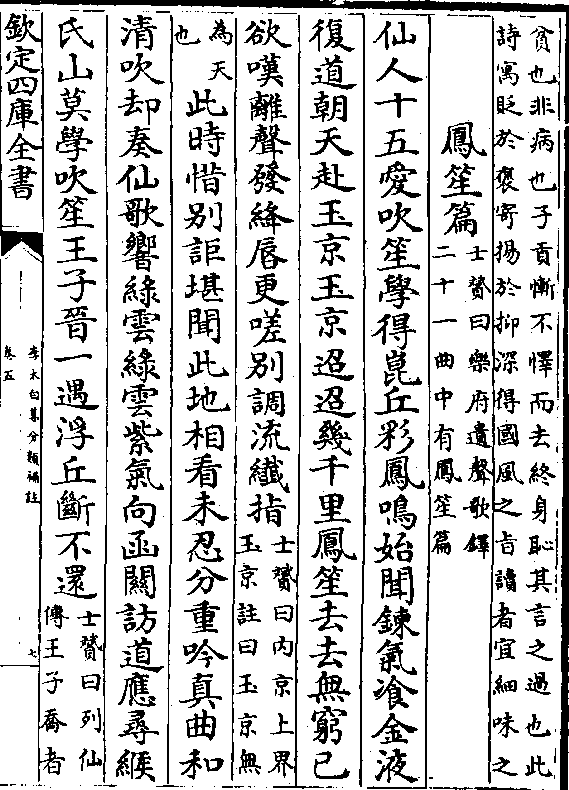 貧也非病也子貢慚不懌而去終身恥其言之過也此
詩寓貶於褒寄揚於抑深得國風之旨讀者宜細味之
鳳笙篇
士贇曰樂府遺聲歌鐸
二十一曲中有鳳笙篇
仙人十五愛吹笙學得崑丘彩鳳鳴始聞鍊氣飡金液
復道朝天赴玉京玉京迢迢幾千里鳳笙去去無窮已
欲嘆離聲發絳唇更嗟別調流纖指
士贇曰內京上界
玉京註曰玉京無
為天
也
此時惜別詎堪聞此地相看未忍分重吟真曲和
清吹却奏仙歌響綠雲綠雲紫氣向函關訪道應尋緱
氏山莫學吹笙王子晉一遇浮丘斷不還
士贇曰列仙
傳王子喬者
欽定四庫全書
李太白集分類補註
卷五
七